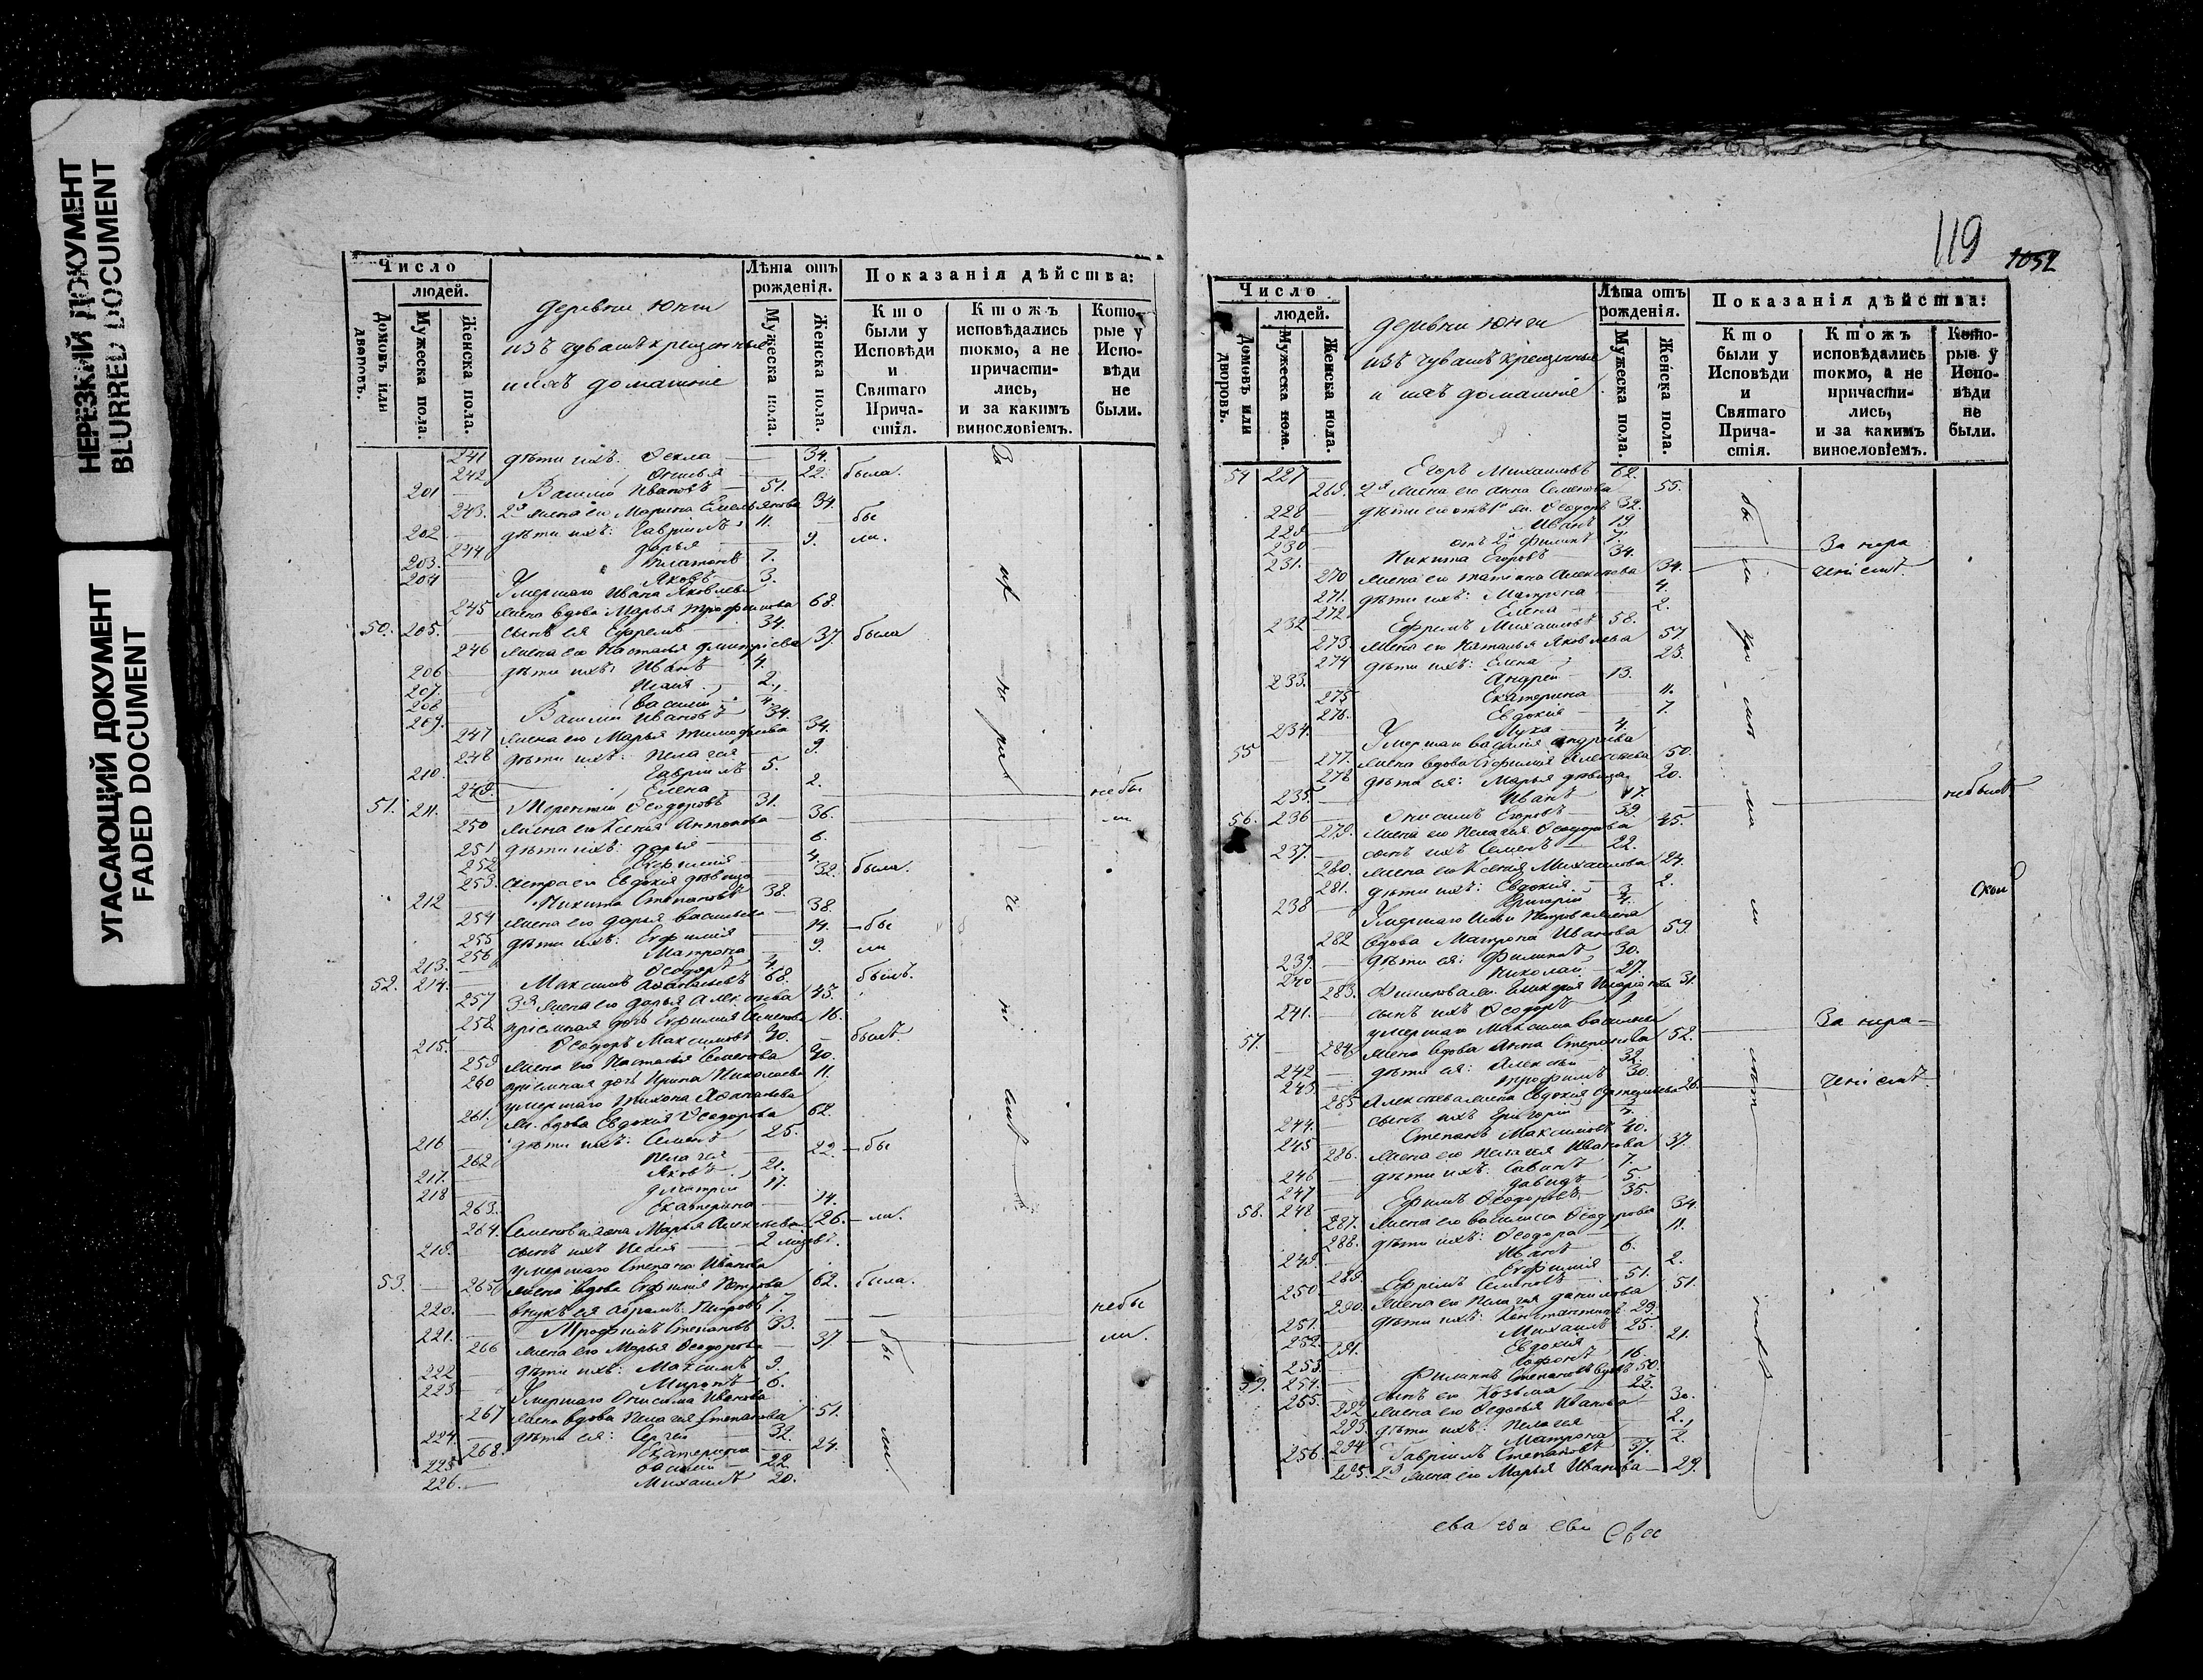 НЕРЕЗКИЙ ДОКУМЕНТ
BLURRED DOCUMENT
УГАСАЮЩИЙ ДОКУМЕНТ
FADED DOCUMENT
Число
людей.
Домовъ или дворовъ.
Мужеска пола.
Женска пола.
деревни Юнги
изъ чувашъ крещенные
и ихъ домашніе
Лѣта отъ рожденія.
Мужеска пола.
Женска пола.
Показанія дѣйства:
Кто были у Исповѣди и Святаго Прича- стія.
Ктожъ исповѣдались токмо, а не причасти- лись, и за какимъ винословіемъ.
Кото- рые у Испо- вѣди не были.
241 дѣти ихъ: Фекла 34.
242 22. была.
201 Василій Ивановъ 51.
243. 2я жена его Марина Емельянова 34. бы
202 дѣти ихъ: Гавріилъ 11.
244 Дарья 9. ли.
203. Платонъ 7.
204 Яковъ 3.
Умершаго Ивана Яковлева
245 жена вдова Марья Трофимова 68.
50. 205. сынъ ея Ефремъ 34.
246 жена его Настасья Дмитріева 37. была
206 дѣти ихъ: Иванъ 4.
207. Исаія 2.
208 Василій 4.
209. Василій Ивановъ 34.
247 жена его Марья Тимофеева 34.
248 дѣти ихъ: Пелагея 9.
210. Гавріилъ 5.
249. Елена 2.
51. 211. Терентій Ѳеодоровъ 31. небы
250 жена его Ксенія Антонова 36. ли
251 дѣти ихъ: Дарья 6.
252 Евфимія 4.
253. сестра его Евдокія дѣвица 32. была.
212 Никита Степановъ 38.
254 жена его Дарья Васильева 38.
255 дѣти ихъ: Евфимія 14. бы
256 Матрона 9. ли
213. Ѳеодоръ 4.
52. 214. Максимъ Аѳанасьевъ 68. былъ.
257 3я жена его Дарья Алексѣева 43.
258 пріемная дочь Евфимія Семенова 16.
215. Ѳеодоръ Максимовъ 40. былъ.
259 жена его Настасья Семенова 40.
260 пріемная дочь Ирина Николаева 11.
умершаго Тихона
261. ж. вдова Евдокія Ѳеодорова 62.
216 дѣти ихъ: Семенъ 25.
262 Пелагея 22. бы
217. Яковъ 21.
218 Дмитрій 17.
263. Екатерина 14.
264. Семенова жена Марья Алексѣева 26. ли.
219. сынъ ихъ Исаія 2
умершаго Степана Иванова
53. 265 жена вдова Евфимія Петрова 62. была.
220. внукъ ея Абрамъ Петровъ 7.
221. Трофимъ Степановъ 33. небы
266 жена его Марья Ѳеодорова 37. бы ли.
222 дѣти ихъ: Максимъ 9.
223 Миронъ 6.
Умершаго Онисима Иванова
267 жена вдова Пелагея Степанова 51.
224. дѣти ея: Сергей 32.
268. Екатерина 24. ли.
225 Василій 22
226. Михаилъ 20.
За не ра че ні емъ
119
1052
Число
людей.
Домовъ или дворовъ.
Мужеска пола.
Женска пола.
деревни Юнги
изъ чувашъ крещенные
и ихъ домашніе
Лѣта отъ рожденія.
Мужеска пола.
Женска пола.
Показанія дѣйства:
Кто были у Исповѣди и Святаго Прича- стія.
Ктожъ исповѣдались токмо, а не причасти- лись, и за какимъ винословіемъ.
Кото- рые у Испо- вѣди не были.
54 227 Егоръ Михаиловъ 62.
269. 2я жена его Анна Семенова 55.
228 дѣти его отъ 1й ж. Ѳеодоръ 32. бы
229 Иванъ 19
230 отъ 2й Филипъ 7.
231. Никита Егоровъ 34. За нера
270 жена его Татіана Алексѣева 34. ли ченіемъ.
271. дѣти ихъ: Матрена 4.
272 Елена 2.
232 Ефремъ Михаиловъ 58.
273. жена его Наталья Яковлева 57.
274 дѣти ихъ: Елена 23.
233. Андрей 13.
275 Екатерина 11.
276. Евдокія 7.
234. Лука 4.
Умершаго Василія Андреева
55 277. жена вдова Евфимія Алексѣева 50.
278 дѣти ея: Марья дѣвица 20.
235. Иванъ 17. небылъ
56. 236 Онисимъ Егоровъ 39.
279. жена его Пелагея Ѳеодорова 45.
237. сынъ ихъ Семенъ 22.
280. жена его Ксенія Михаилова 24.
281. дѣти ихъ: Евдокія 2.
238 Григорій 4.
Умершаго Ильи Петрова жена
282 вдова Матрона Иванова 59.
239. дѣти ея: Филипъ 30.
240 Николай 27.
283. Филипова ж. 31.
241. сынъ ихъ Ѳеодоръ
умершаго Максима Васильева За нера-
57. 284 жена вдова Анна Степанова 52.
242 дѣти ея: Алексѣй 32.
243. Трофимъ 30. ченіемъ.
285 Алексѣева жена Евдокія 26.
244. сынъ ихъ Григорій 4.
245 Степанъ Максимовъ 40.
286. жена его Пелагея Иванова 37.
246 дѣти ихъ: Савинъ 7.
247 Давидъ 5.
58. 248 Ефимъ Ѳеодоровъ 35.
287. жена его Василиса Ѳеодорова 34.
288. дѣти ихъ: Ѳеодора 11.
249. Иванъ 6.
289. Евфимія 2.
250. Ефремъ Семеновъ 51.
290. жена его Пелагея Данилова 51.
251. дѣти ихъ: Константинъ 29.
252. Михаилъ 25.
291. Евдокія 21.
253. 16.
59. 254. Филипъ Степановъ 50.
255. сынъ его Козьма 23.
292 жена его Ѳедосья Иванова 30.
293. дѣти ихъ: Пелагея 2.
294 Матрона 2.
256. Гавріилъ Степановъ 37.
295. 2я жена его Марья Иванова 29.